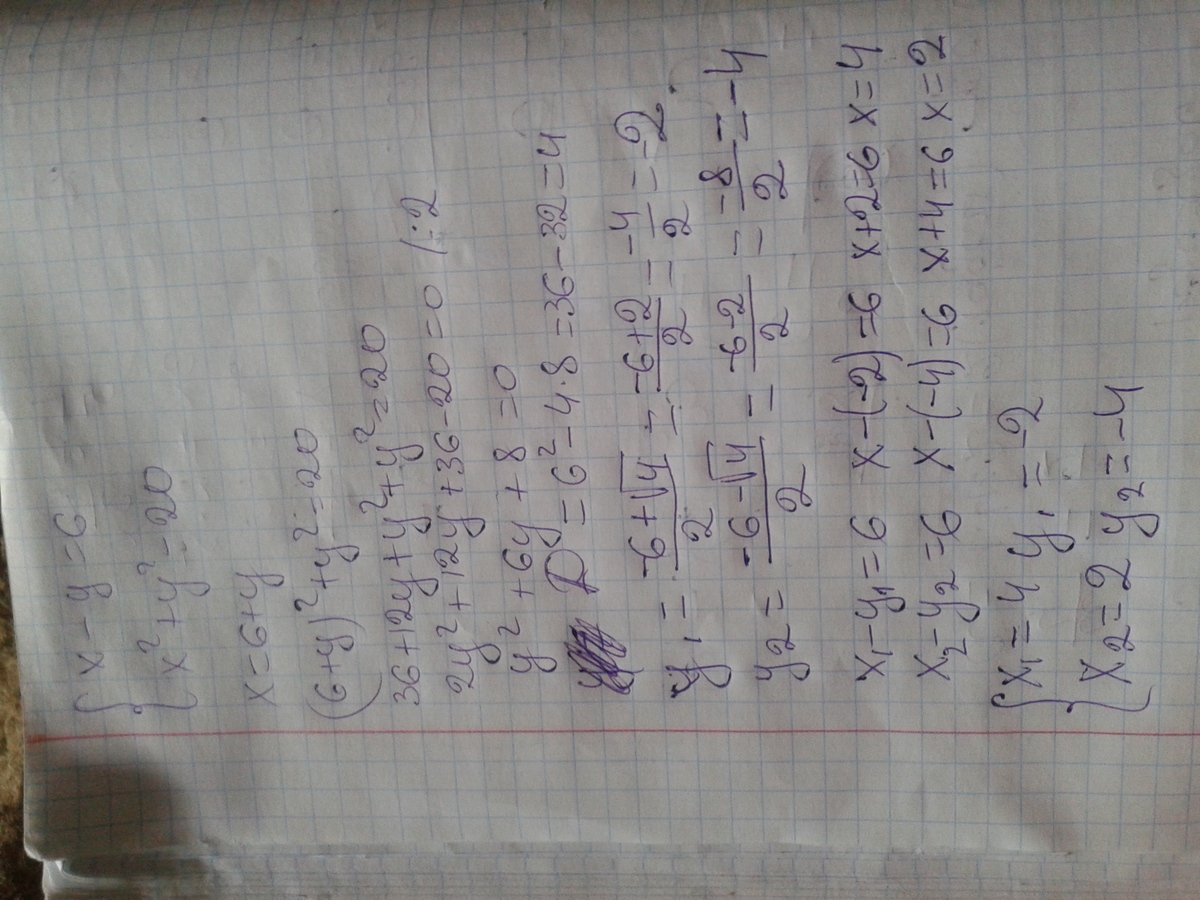 { x - y = 6
x² + y² = 20
x = 6 + y
(6 + y)² + y² = 20
36 + 12y + y² + y² = 20
2y² + 12y + 36 - 20 = 0 /:2
y² + 6y + 8 = 0
D = 6² - 4·8 = 36 - 32 = 4
y₁ = (-6 + √4)/2 = (-6 + 2)/2 = -4/2 = -2
y₂ = (-6 - √4)/2 = (-6 - 2)/2 = -8/2 = -4
x₁ - y₁ = 6 x - (-2) = 6 x + 2 = 6 x = 4
x₂ - y₂ = 6 x - (-4) = 6 x + 4 = 6 x = 2
{ x₁ = 4 y₁ = -2
x₂ = 2 y₂ = -4